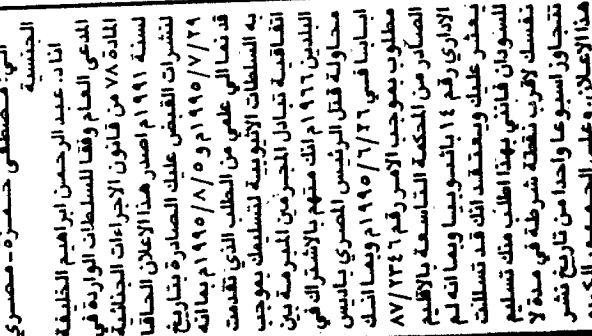 الى: مصطفى حمزه - مصري
الجنسية
انا د. عبد الرحمن ابراهيم الخليفة
المدعى العام وفقا للسلطات الواردة في
المادة ٧٨ من قانون الاجراءات الجنائية
لسنة ١٩٩١م اصدر هذا الاعلان الحاقا
لنشرات القبض عليك الصادرة بتاريخ
١٩٩٥/٧/٢٩م و ١٩٩٥/٨/٥م بما انه
قد نما الي علمي من الطلب الذي تقدمت
به السلطات الاثيوبية لتسليمك بموجب
اتفاقية تبادل المجرمين المبرمة بين
البلدين ١٩٦٦م انك متهم بالاشتراك في
محاولة قتل الرئيس المصري باديس
ابابا في ١٩٩٥/٦/٢٦م وبما انك
مطلوب بموجب الامر رقم ٨٧/٢٣٤٦
الصادر من المحكمة التاسعة بالاقليم
الاداري رقم ١٤ باثيوبيا وبما انه لم
يعثر عليك ويعتقد انك قد تسللت
للسودان فانني بهذا اطلب منك تسليم
نفسك لاقرب نقطة شرطة في مدة لا
تتجاوز اسبوعا واحدا من تاريخ نشر
هذا الاعلان، وعلى الجمهور